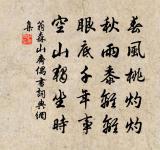 春風桃灼灼
秋雨黍離離
眼底千年事
空山獨坐時
翁森山齋偶書詞典網
集